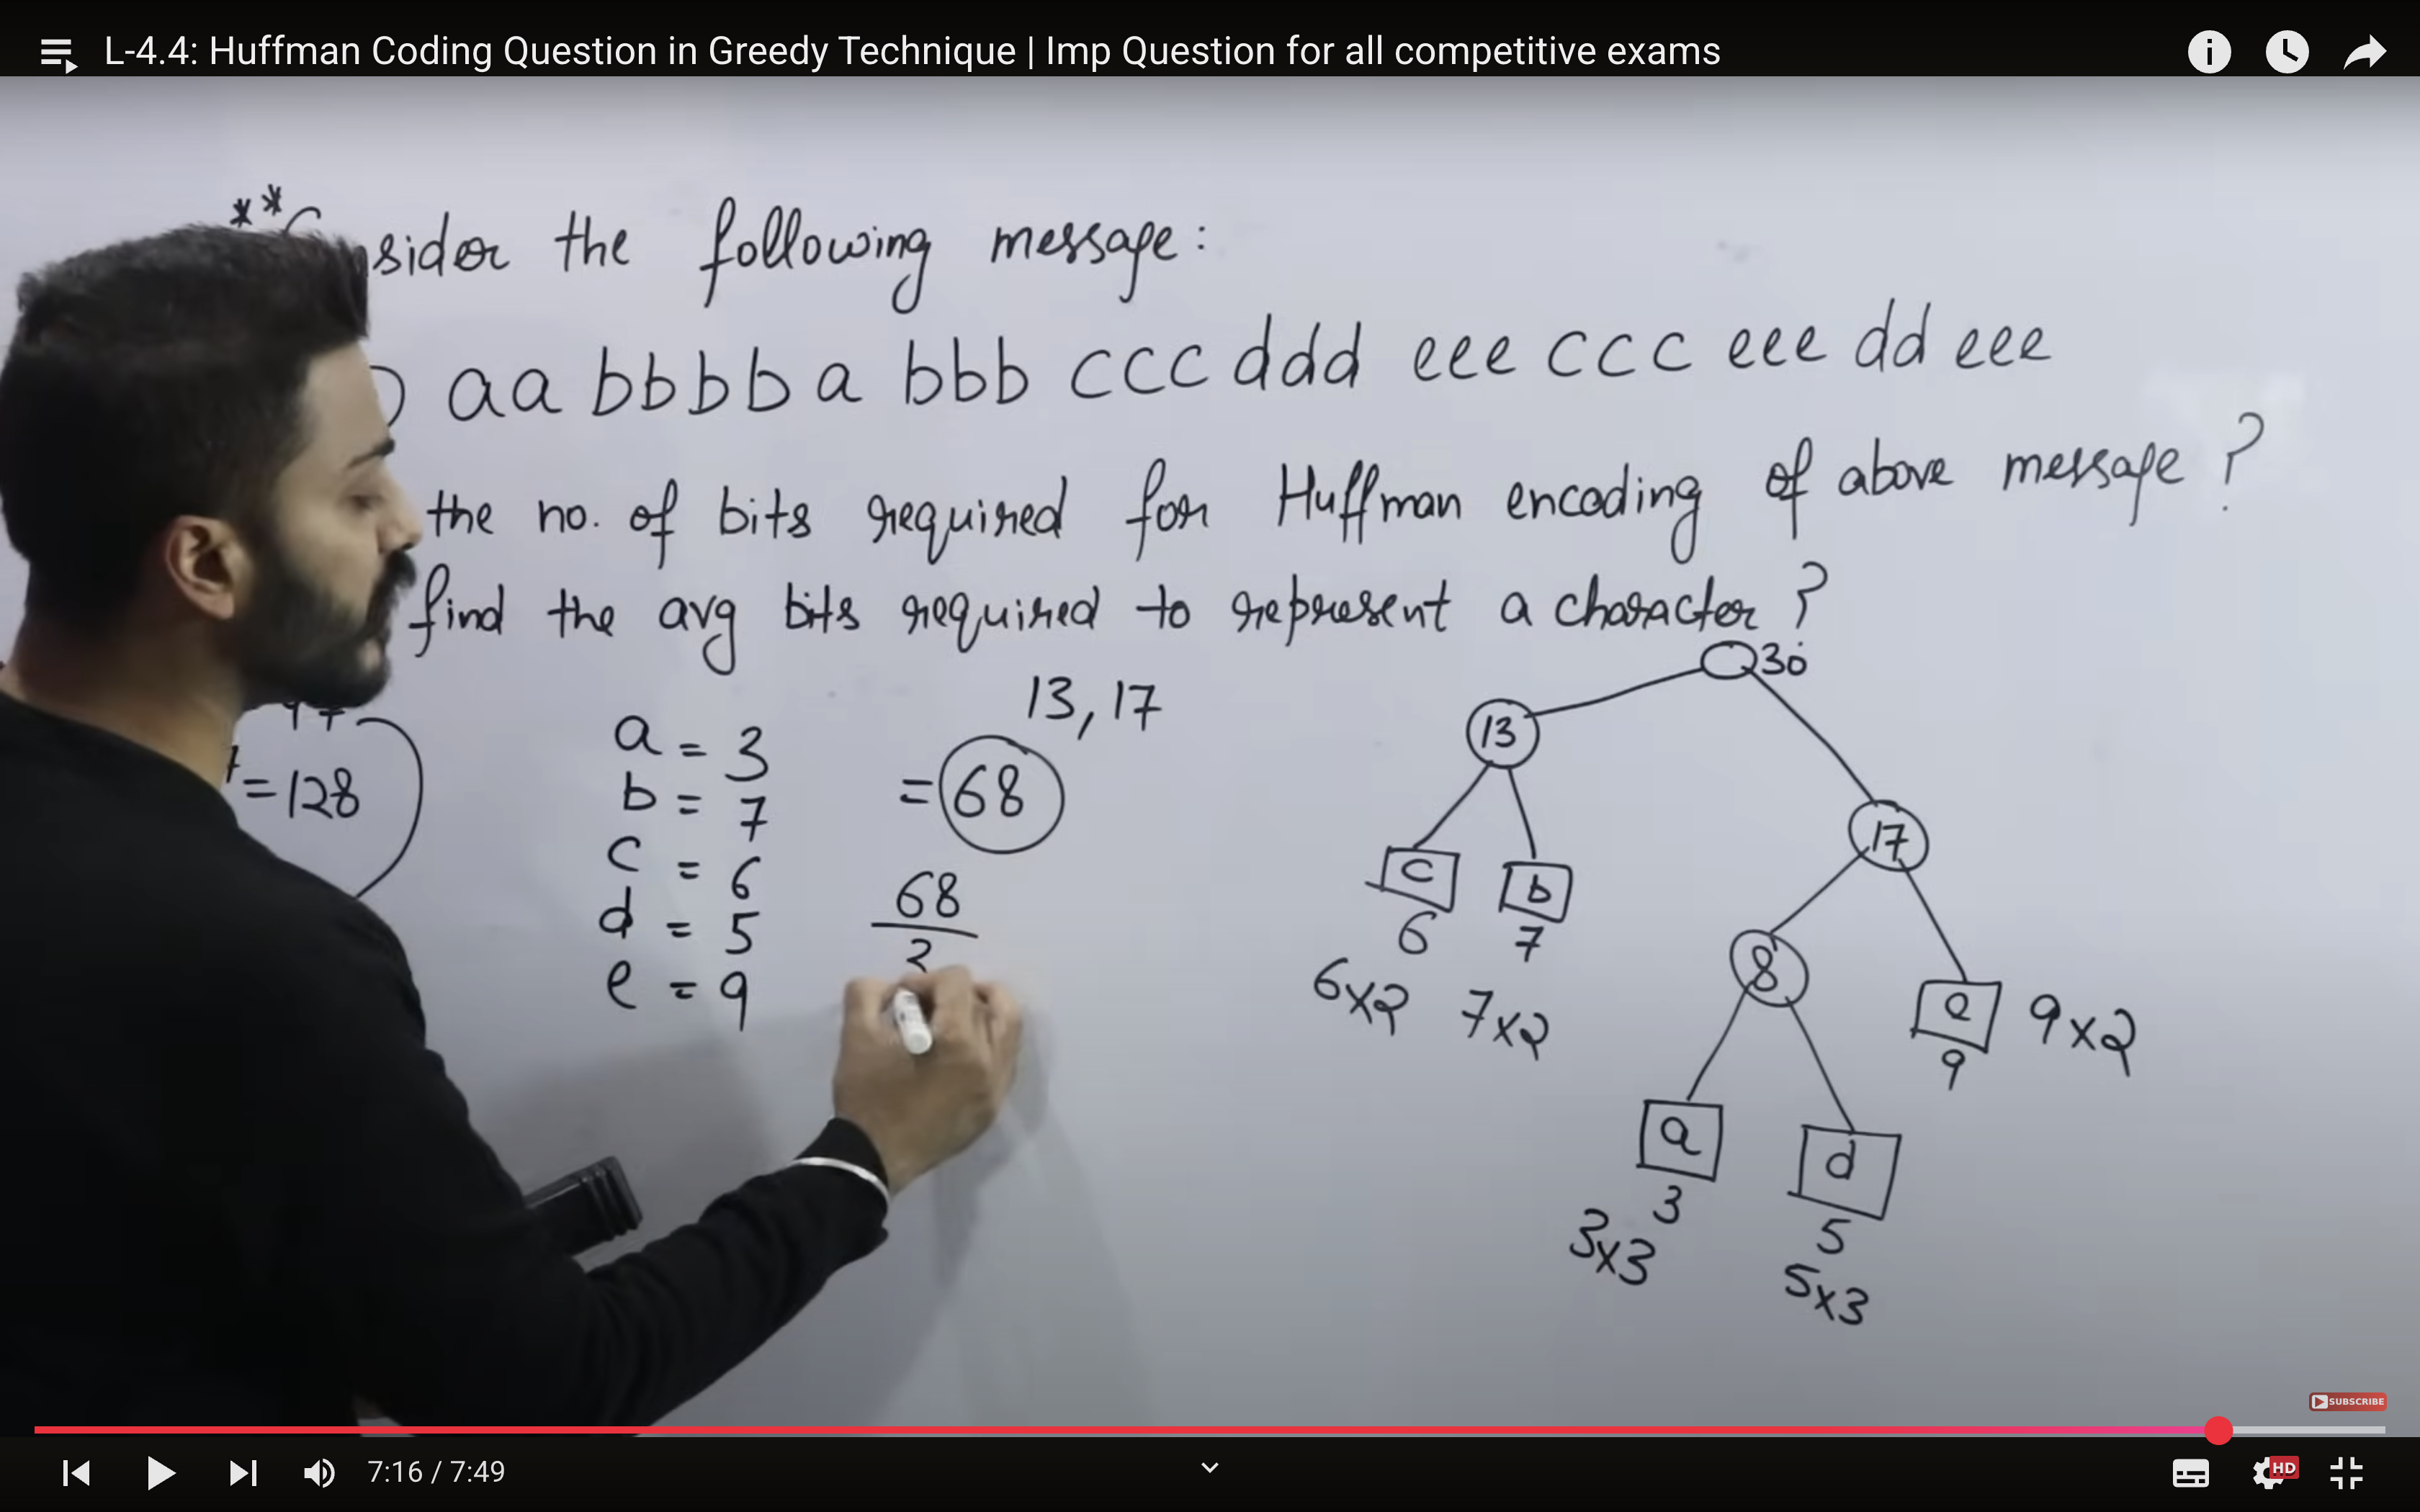 L-4.4: Huffman Coding Question in Greedy Technique | Imp Question for all competitive exams
** sider the following message:
aa bbbb a bbb ccc ddd eee ccc eee dd eee
the no. of bits required for Huffman encoding of above message ?
find the avg bits required to represent a character ?
30
13, 17
13
17
97
= 128
a = 3
b = 7
c = 6
d = 5
e = 9
= 68
68
3
c
b
6
7
6x2
7x2
8
e
9
9x2
a
d
3
5
3x3
5x3
SUBSCRIBE
7:16 / 7:49
HD